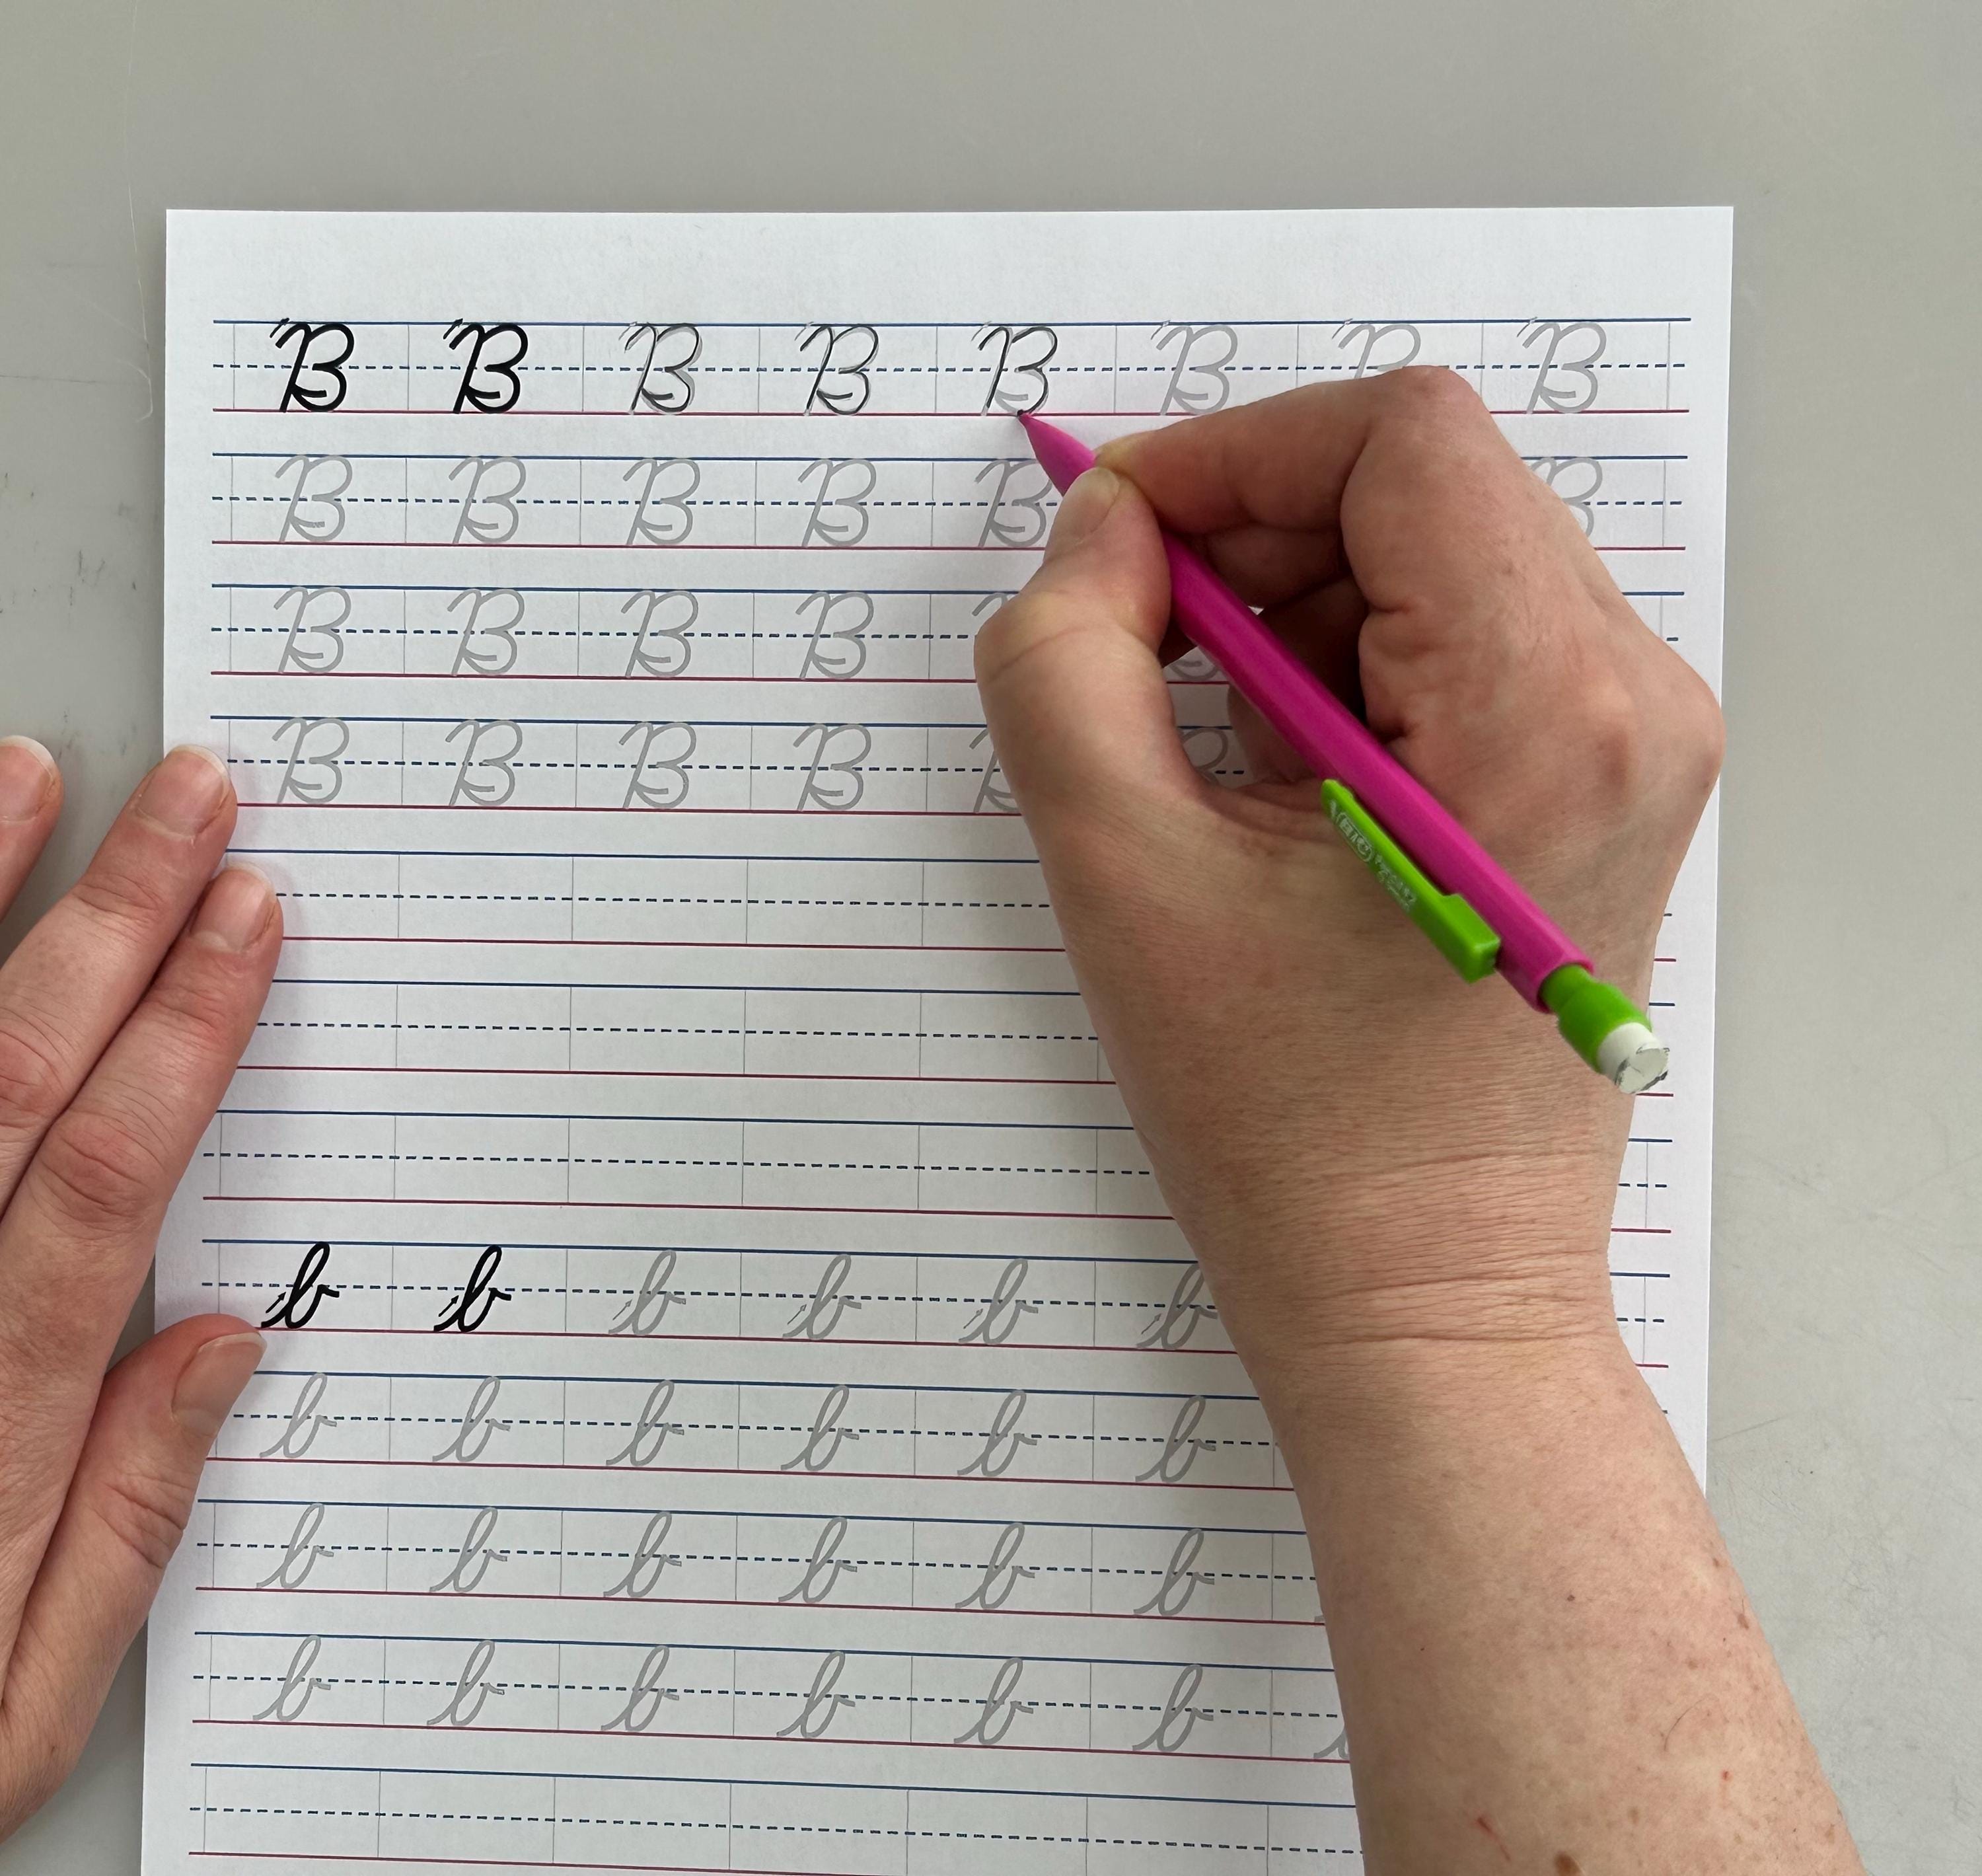 B B B B B B B B
B B B B B B
B B B B B
B B B B B
b b b b b b
b b b b b b
b b b b b b
b b b b b b
BIC